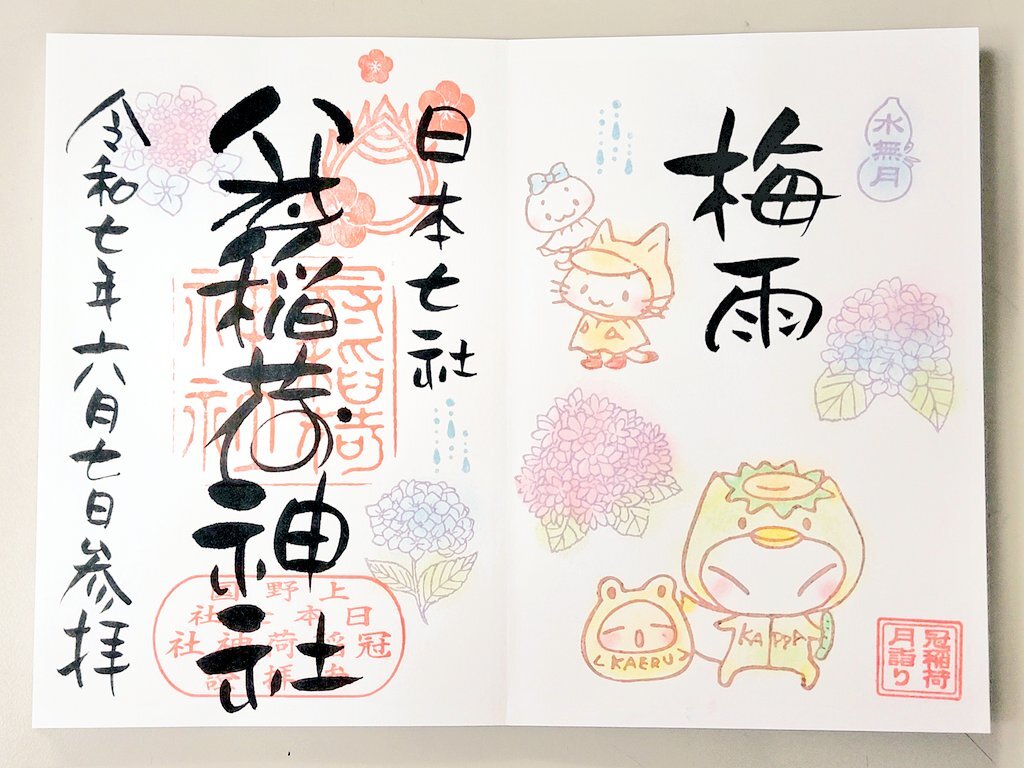 水無月
梅雨
KAPPA
<KAERU>
冠稲荷
月詣り
日本七社
冠稲荷神社
冠稲荷
神社
上野国
日本七社
冠稲荷神社
令和七年六月七日参拝